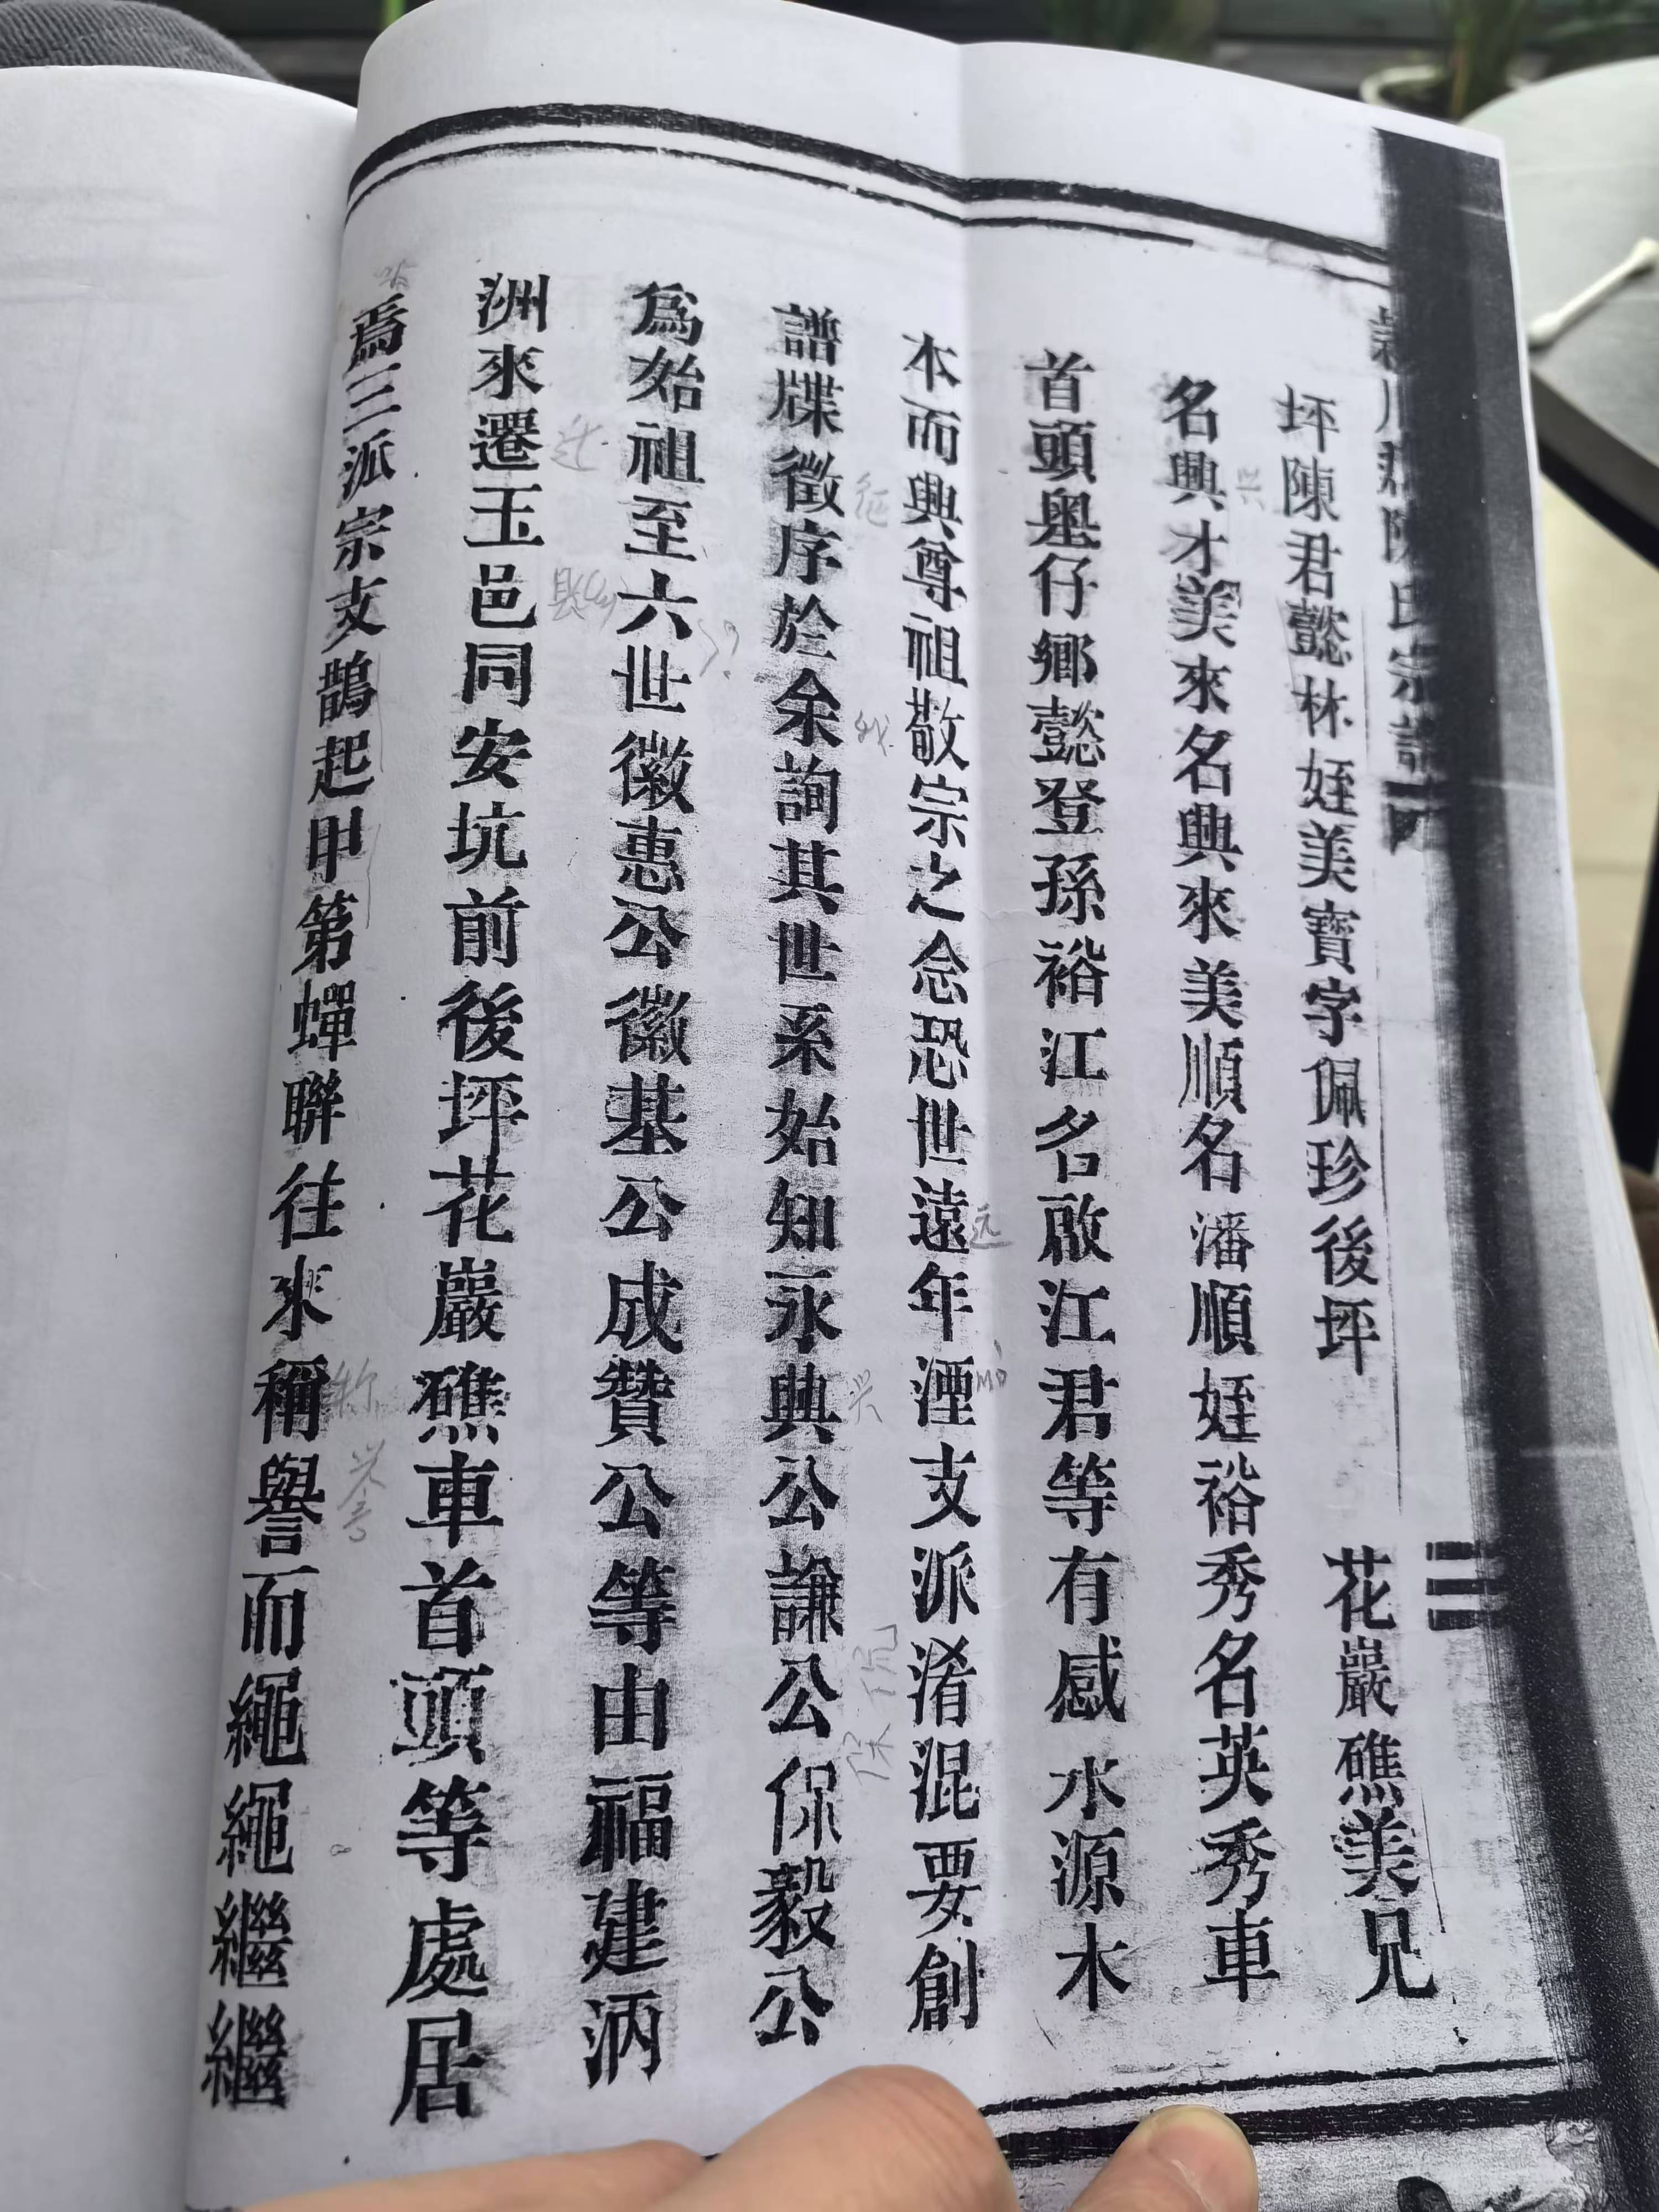 陳氏宗譜
三
坪陳君懿林姪美寶字佩珍後坪 花巖礁美兄
名興才美來名興來美順名潘順姪裕秀名英秀車
首頭墺仔鄉懿登孫裕江名啟江君等有感水源木
本而興尊祖敬宗之念恐世遠年湮支派淆混要創
譜牒徵序於余詢其世系始知永興公謙公保毅公
為始祖至六世徽惠公徽基公成贊公等由福建泃
洲來遷玉邑同安坑前後坪花巖礁車首頭等處居
焉三派宗支鵲起甲第蟬聯往來稱譽而繩繩繼繼
迁
县
征
我
兴
兴
远
称
誉